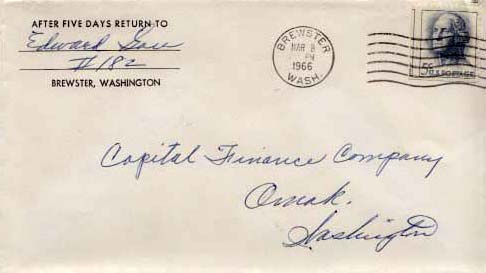 AFTER FIVE DAYS RETURN TO
Edward
#182
BREWSTER, WASHINGTON
BREWSTER
MAR 8
PM
1966
WASH.
5¢ U.S. POSTAGE
Capital Finance Company
Omak,
Washington